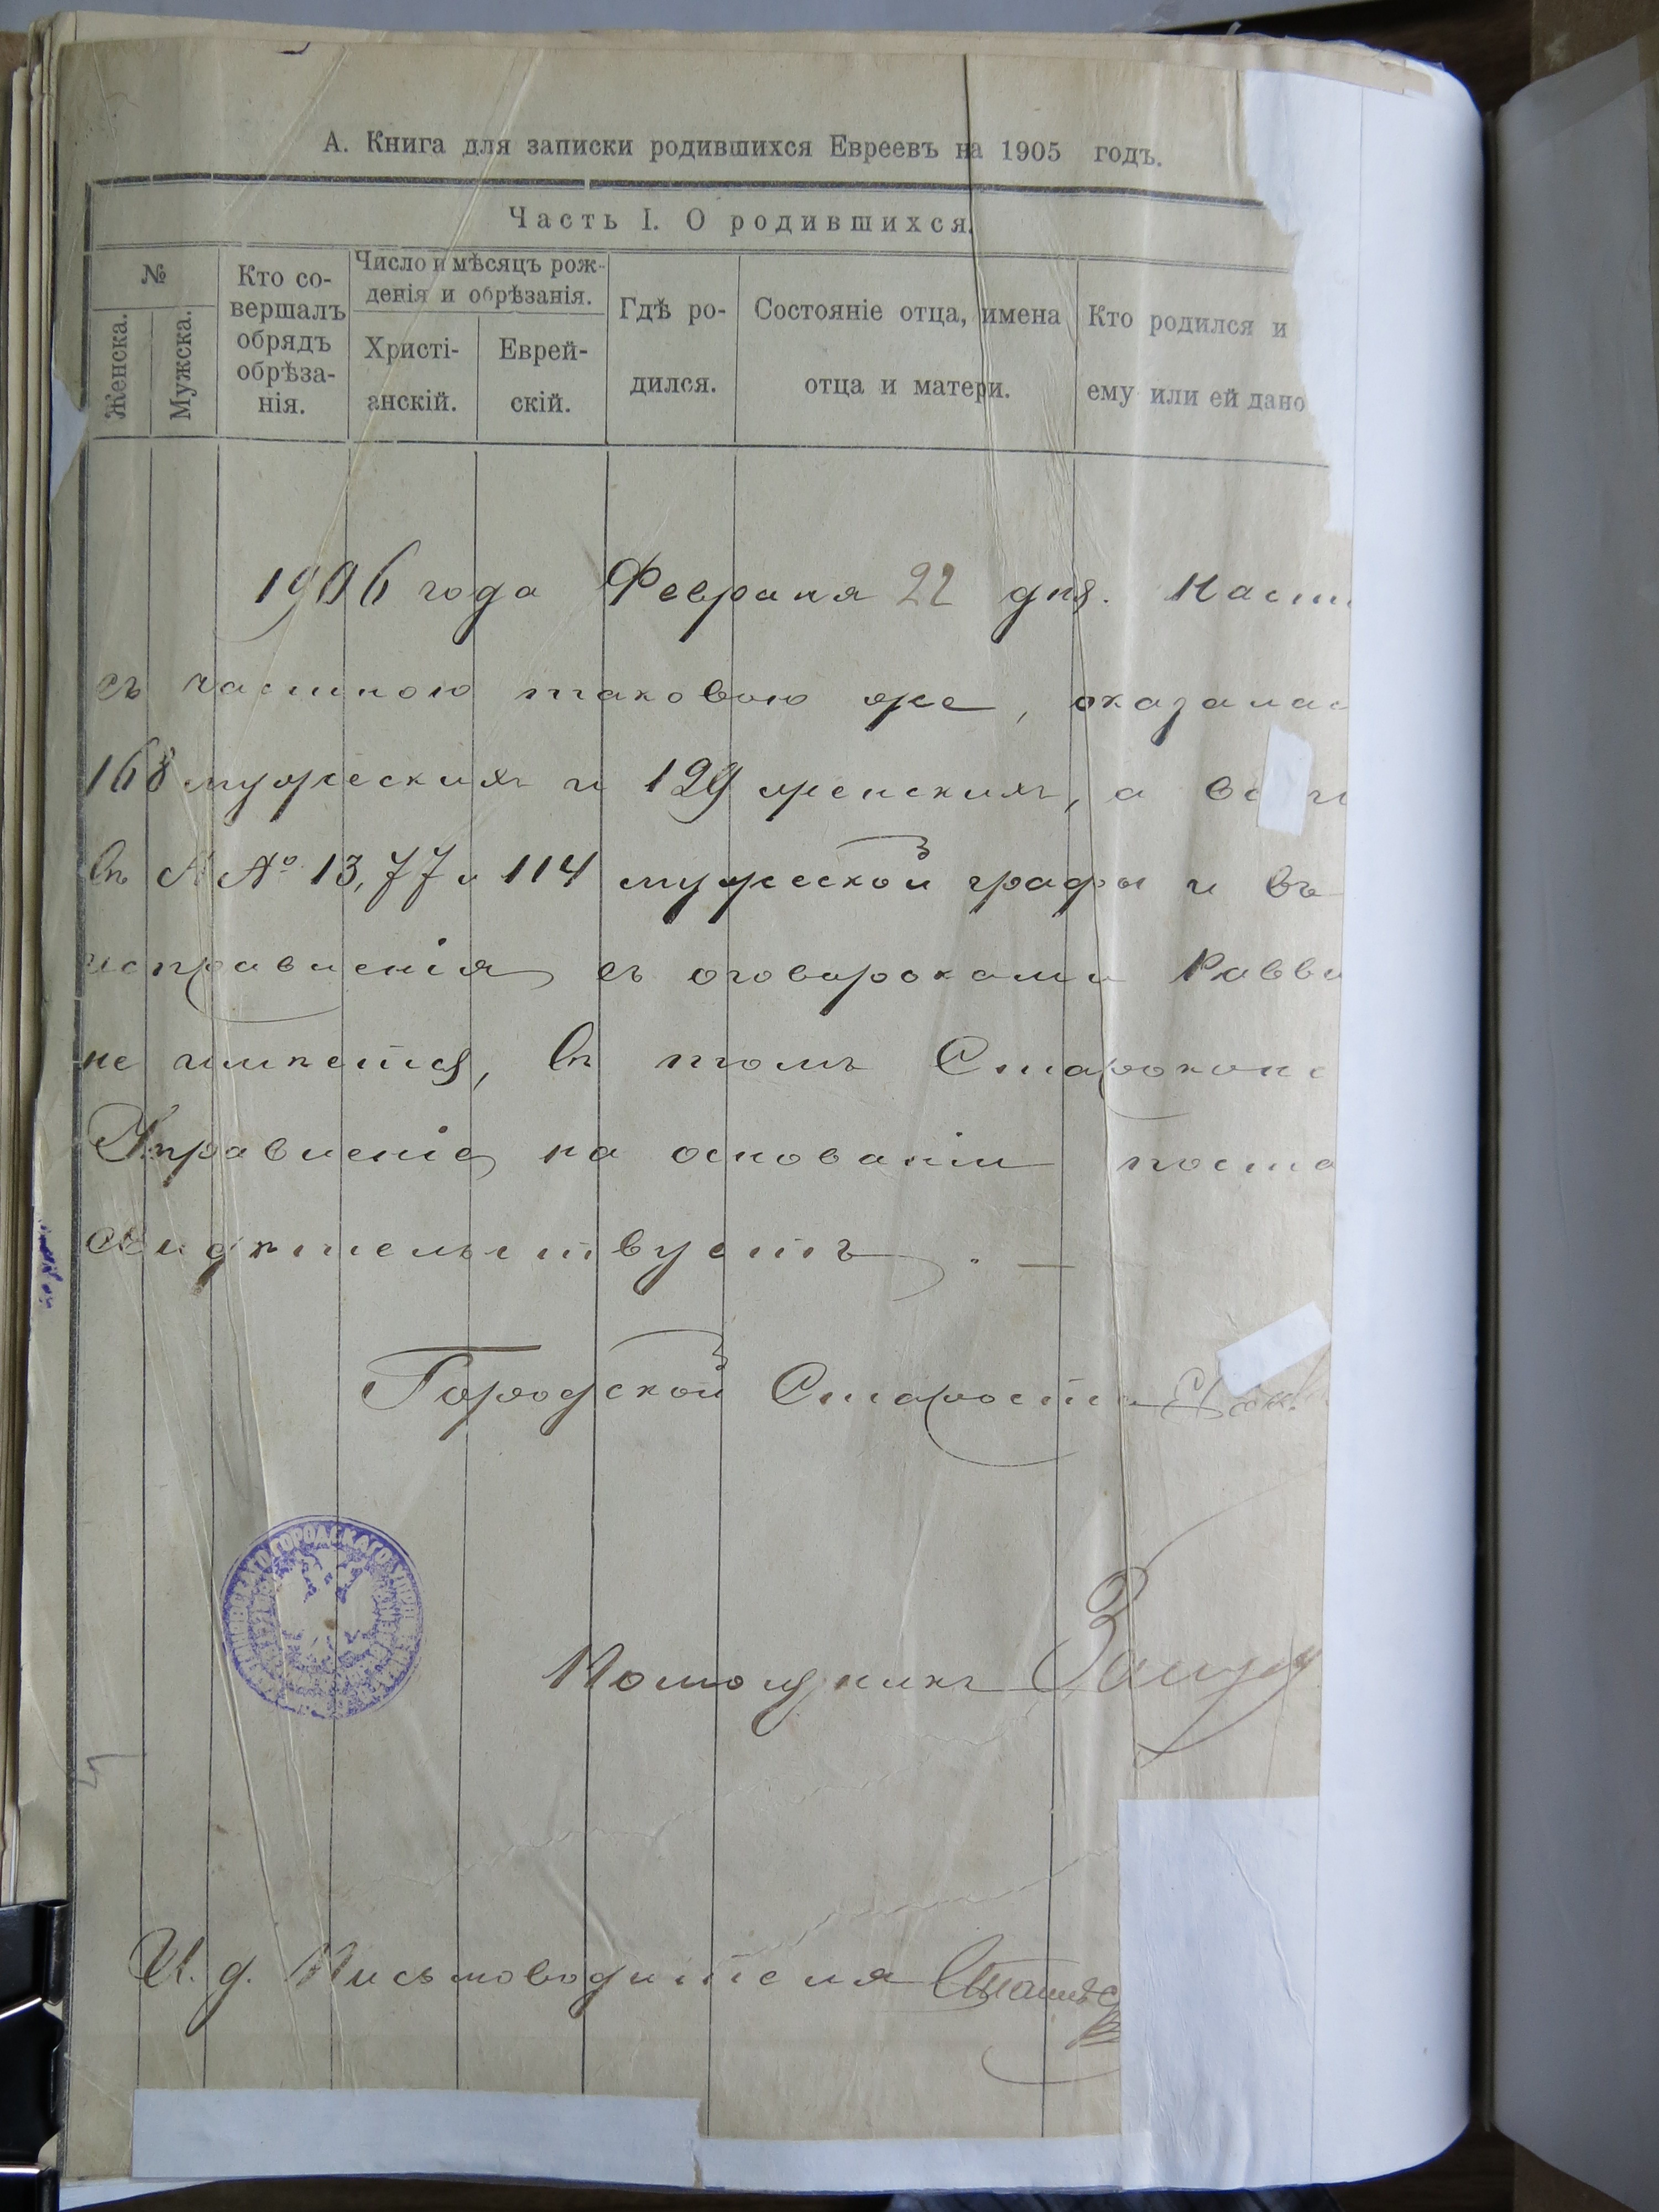 А. Книга для записки родившихся Евреевъ на 1905 годъ.
Часть I. О родившихся.
№
Женска.
Мужска.
Кто со-
вершалъ
обрядъ
обрѣза-
нія.
Число и мѣсяцъ рож-
денія и обрѣзанія.
Христі-
анскій.
Еврей-
скій.
Гдѣ ро-
дился.
Состояніе отца, имена
отца и матери.
Кто родился и
ему или ей дано
1906 года Февраля 22 дня. Наст
съ частною таковою же, оказалас
168 мужескихъ и 129 женскихъ, а
въ № № 13, 77 и 114 мужеской графы и въ
исправленія съ оговорками Равви
не имѣется, въ томъ Староконс
Управленіе на основаніи поста
свидѣтельствуетъ. —
Городской Староста
Помощникъ
И. д. Письмоводителя